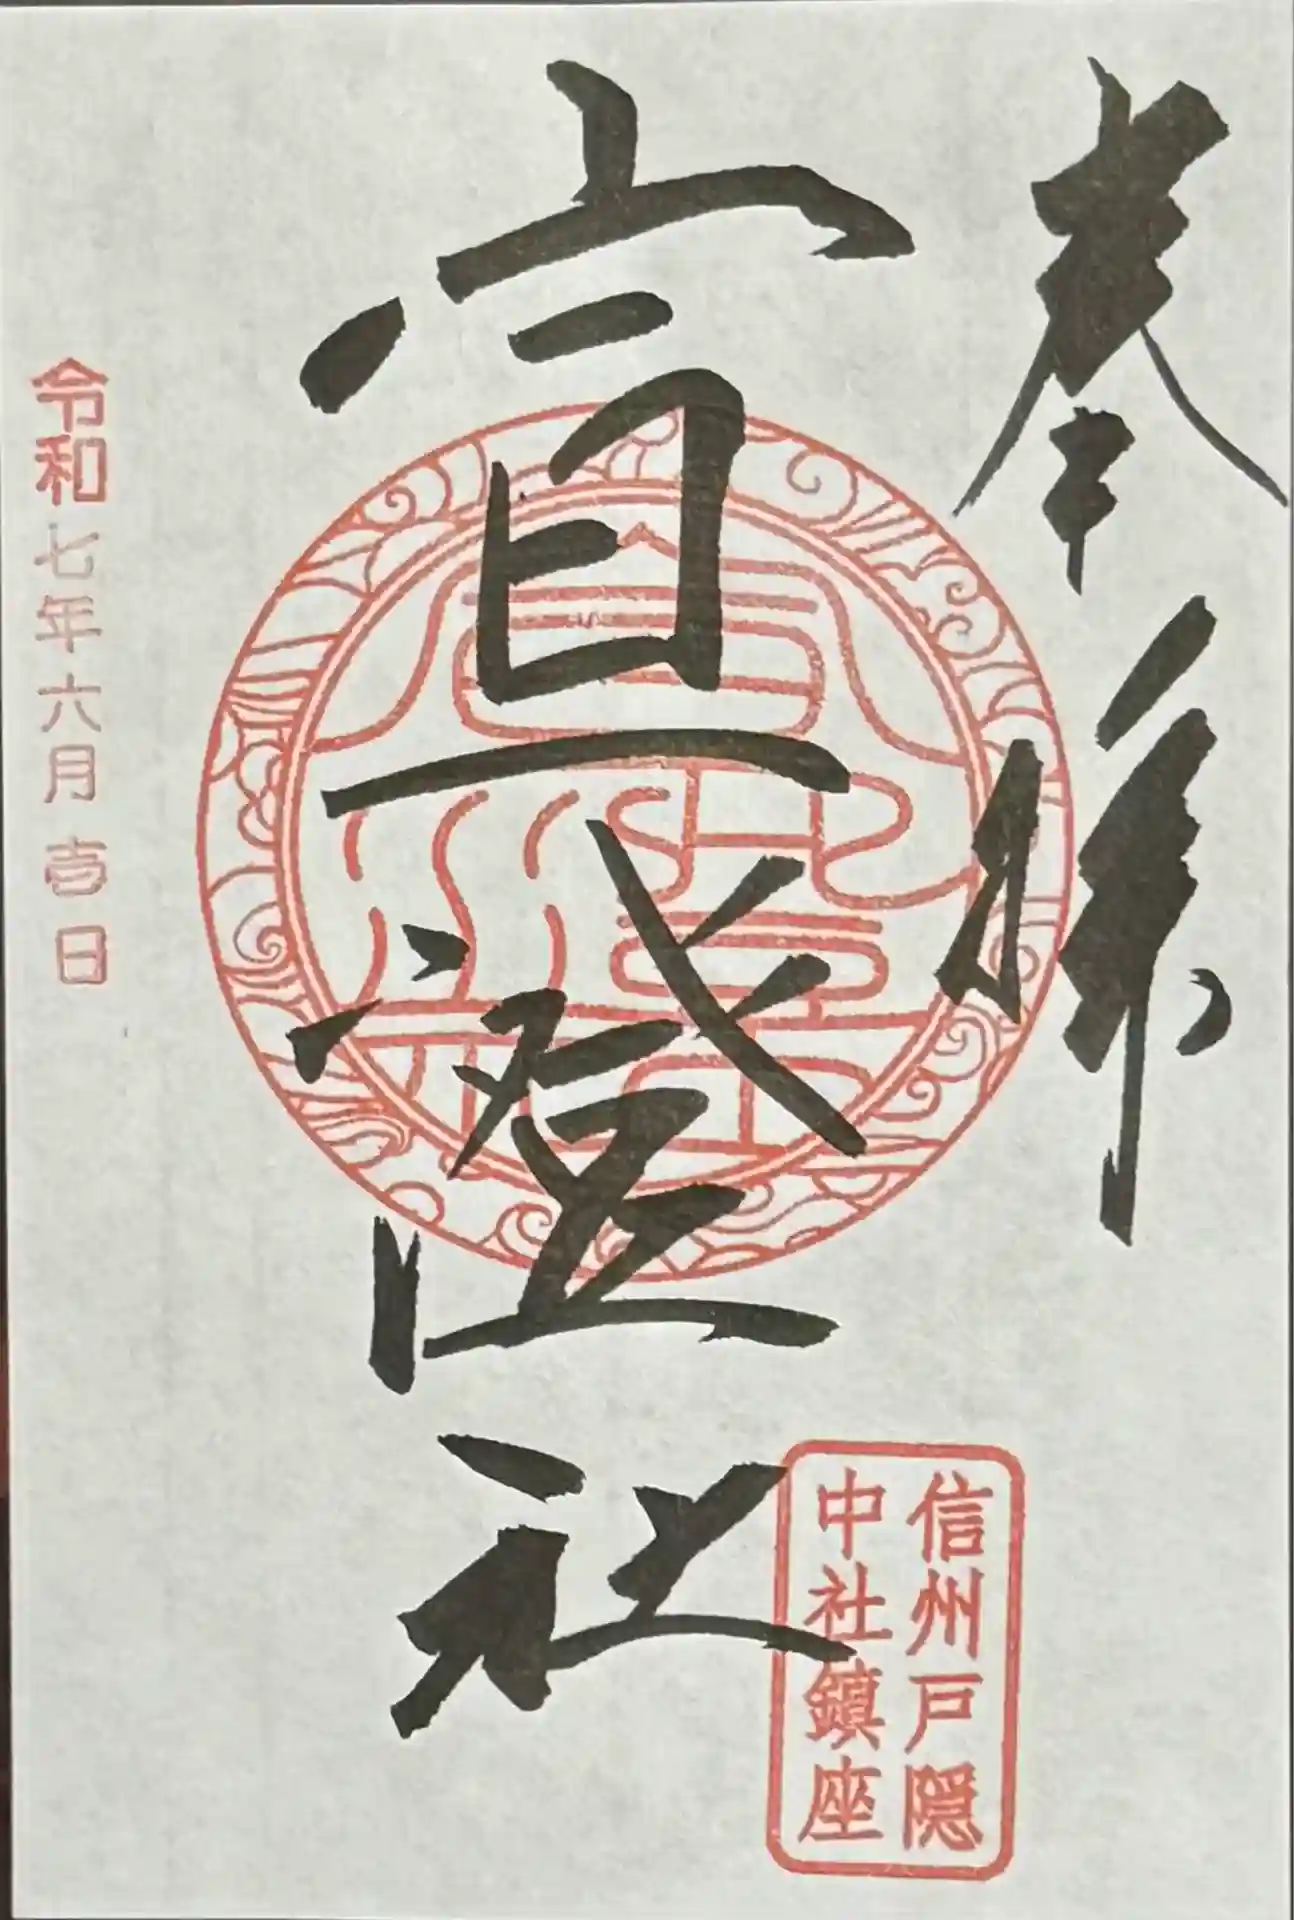 奉拝
宣澄社
信州戸隠
中社鎮座
令和七年六月壱日